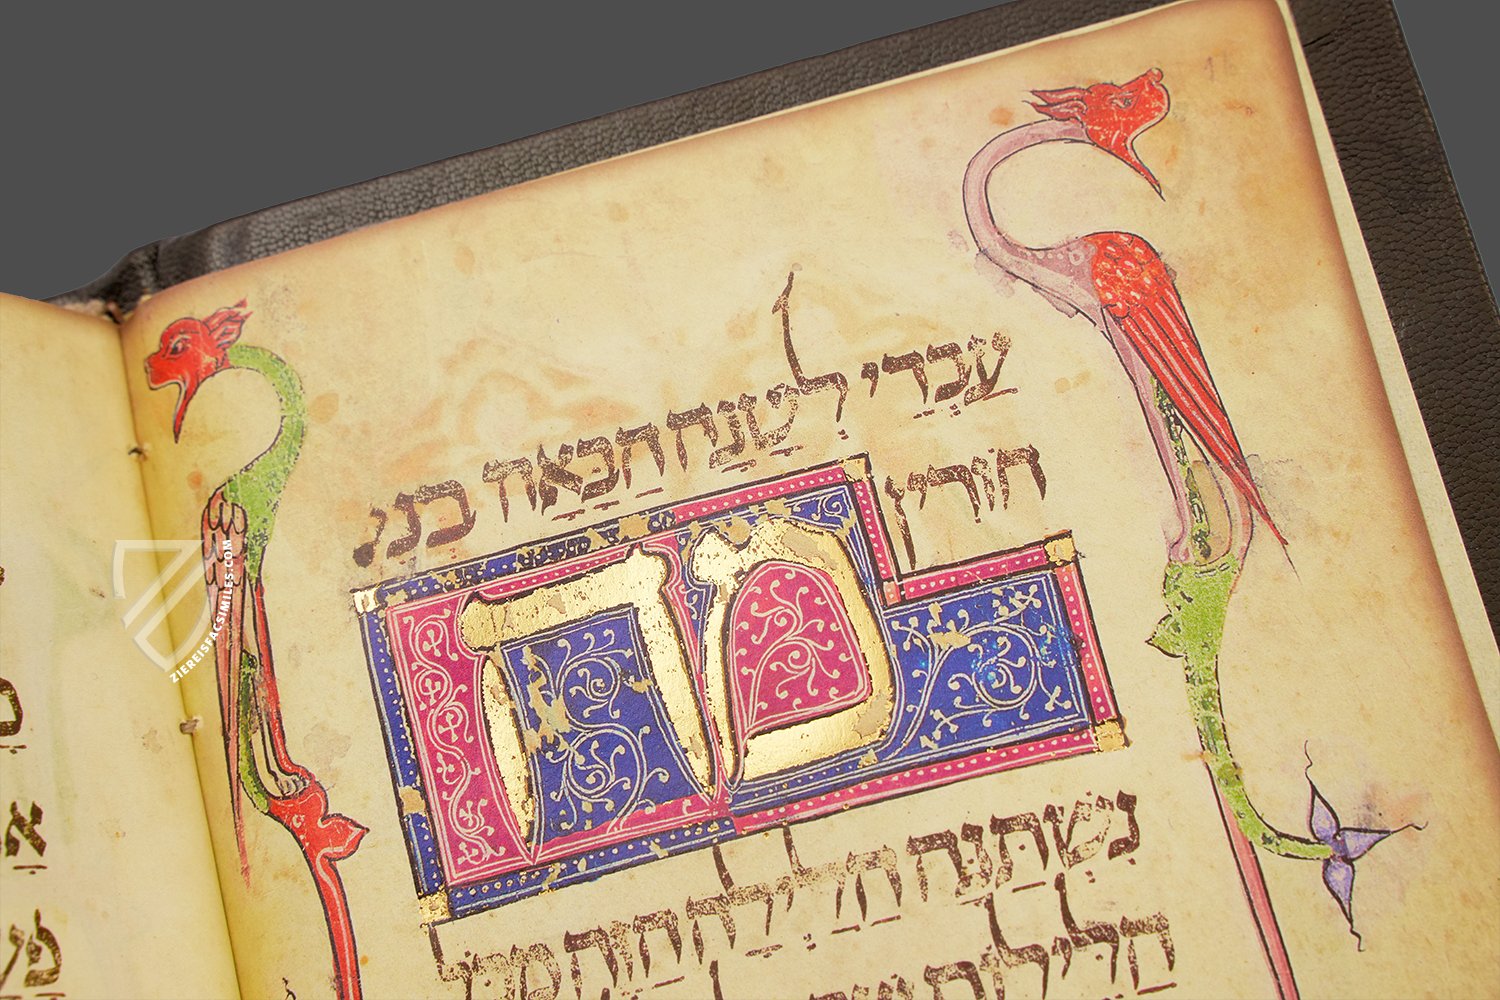 עַבְדֵי לְשָׁנָה הַבָּאָה בני
חוֹרִין
מה
נִשְׁתַּנָּה הַלַּיְלָה הַזֶּה מִכָּל
הַלֵּילוֹת
ZIEREISFACSIMILES.COM